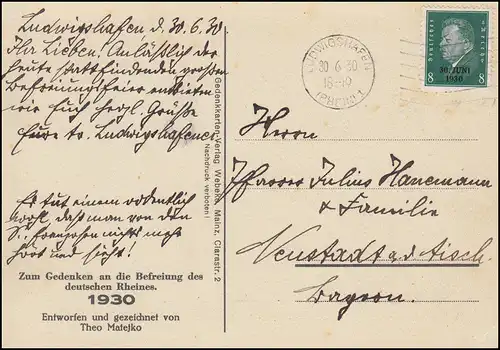 Ludwigshafen d. 30.6.30
Ihr Lieben! Anläßlich der
heute stattfindenden großen
Befreiungsfeier entbieten
wir Euch herzl. Grüße
Eure tr. Ludwigshafener.
Es tut einem ordentlich
wohl, daß man von den
Franzosen nichts mehr
hört und sieht!
Zum Gedenken an die Befreiung des
deutschen Rheines.
1930
Entworfen und gezeichnet von
Theo Matejko
Gedenkkarten-Verlag Webers, Mainz, Clarastr. 2
Nachdruck verboten!
LUDWIGSHAFEN
30 6 30
(RHEIN) 1
8 8
30. JUNI
1930
Herrn
Pfarrer Julius Hanemann
& Familie
Neustadt a. d. Aisch.
Bayern.